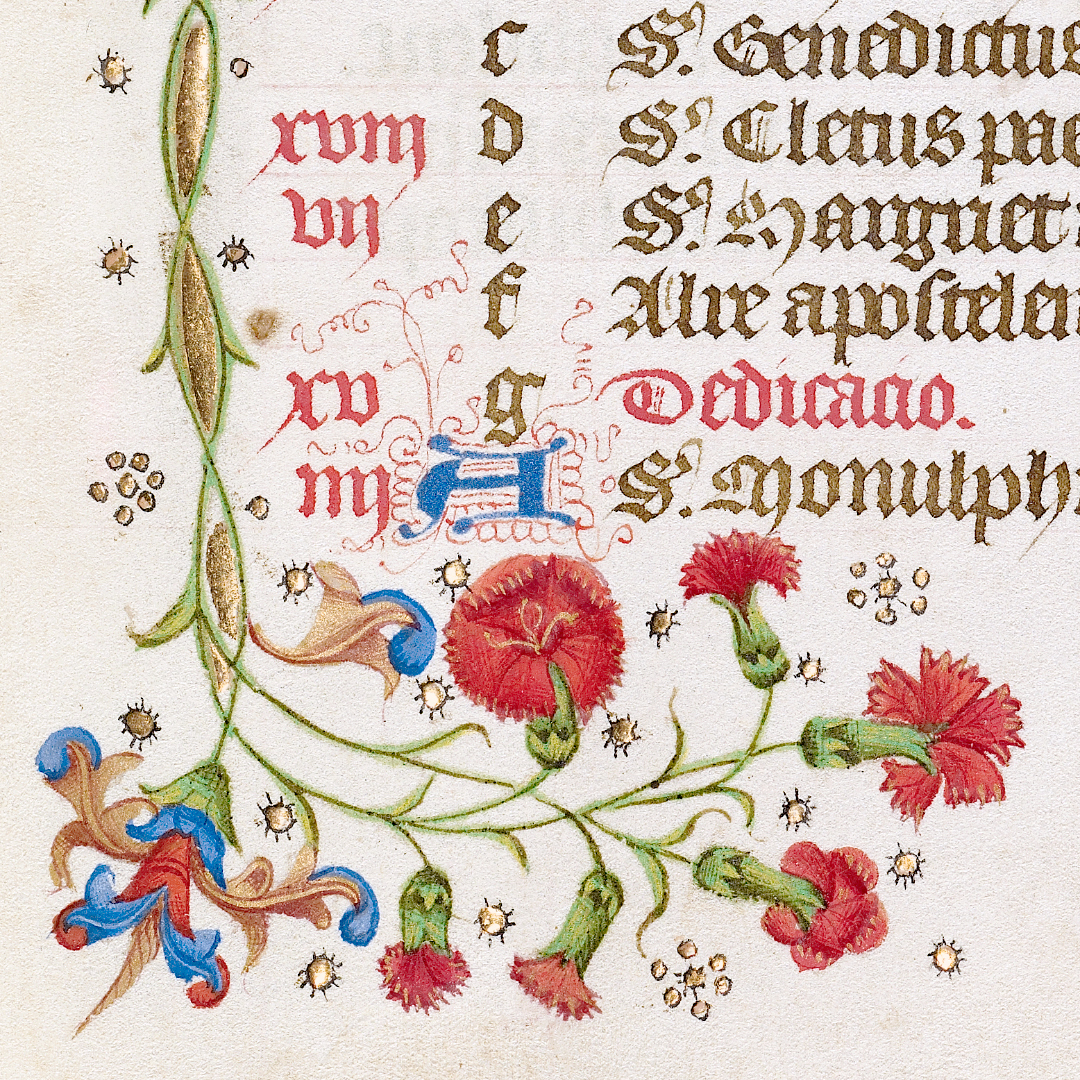 c S'. Benedictus
xviij d S'. Cletus pae
vij e S'. Marguet
f Alre apostelen
xv g Dedicacio.
iiij A S'. Monulph